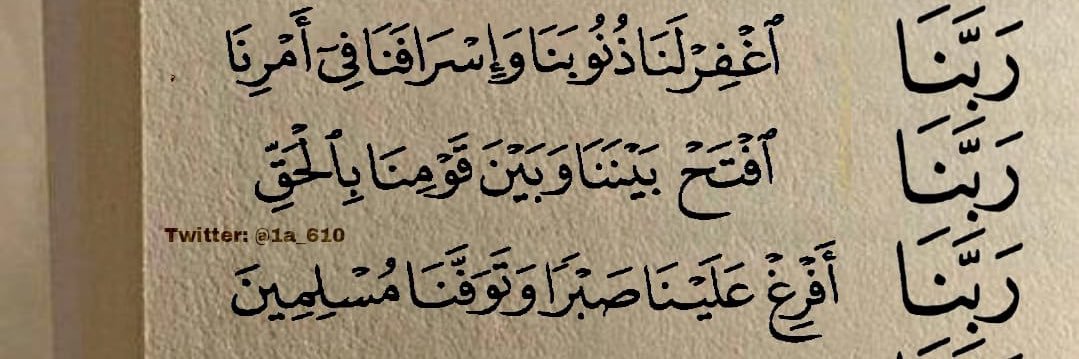 رَبَّنَا ٱغْفِرْ لَنَا ذُنُوبَنَا وَإِسْرَافَنَا فِىٓ أَمْرِنَا
رَبَّنَا ٱفْتَحْ بَيْنَنَا وَبَيْنَ قَوْمِنَا بِٱلْحَقِّ
Twitter: @1a_610
رَبَّنَآ أَفْرِغْ عَلَيْنَا صَبْرًا وَتَوَفَّنَا مُسْلِمِينَ